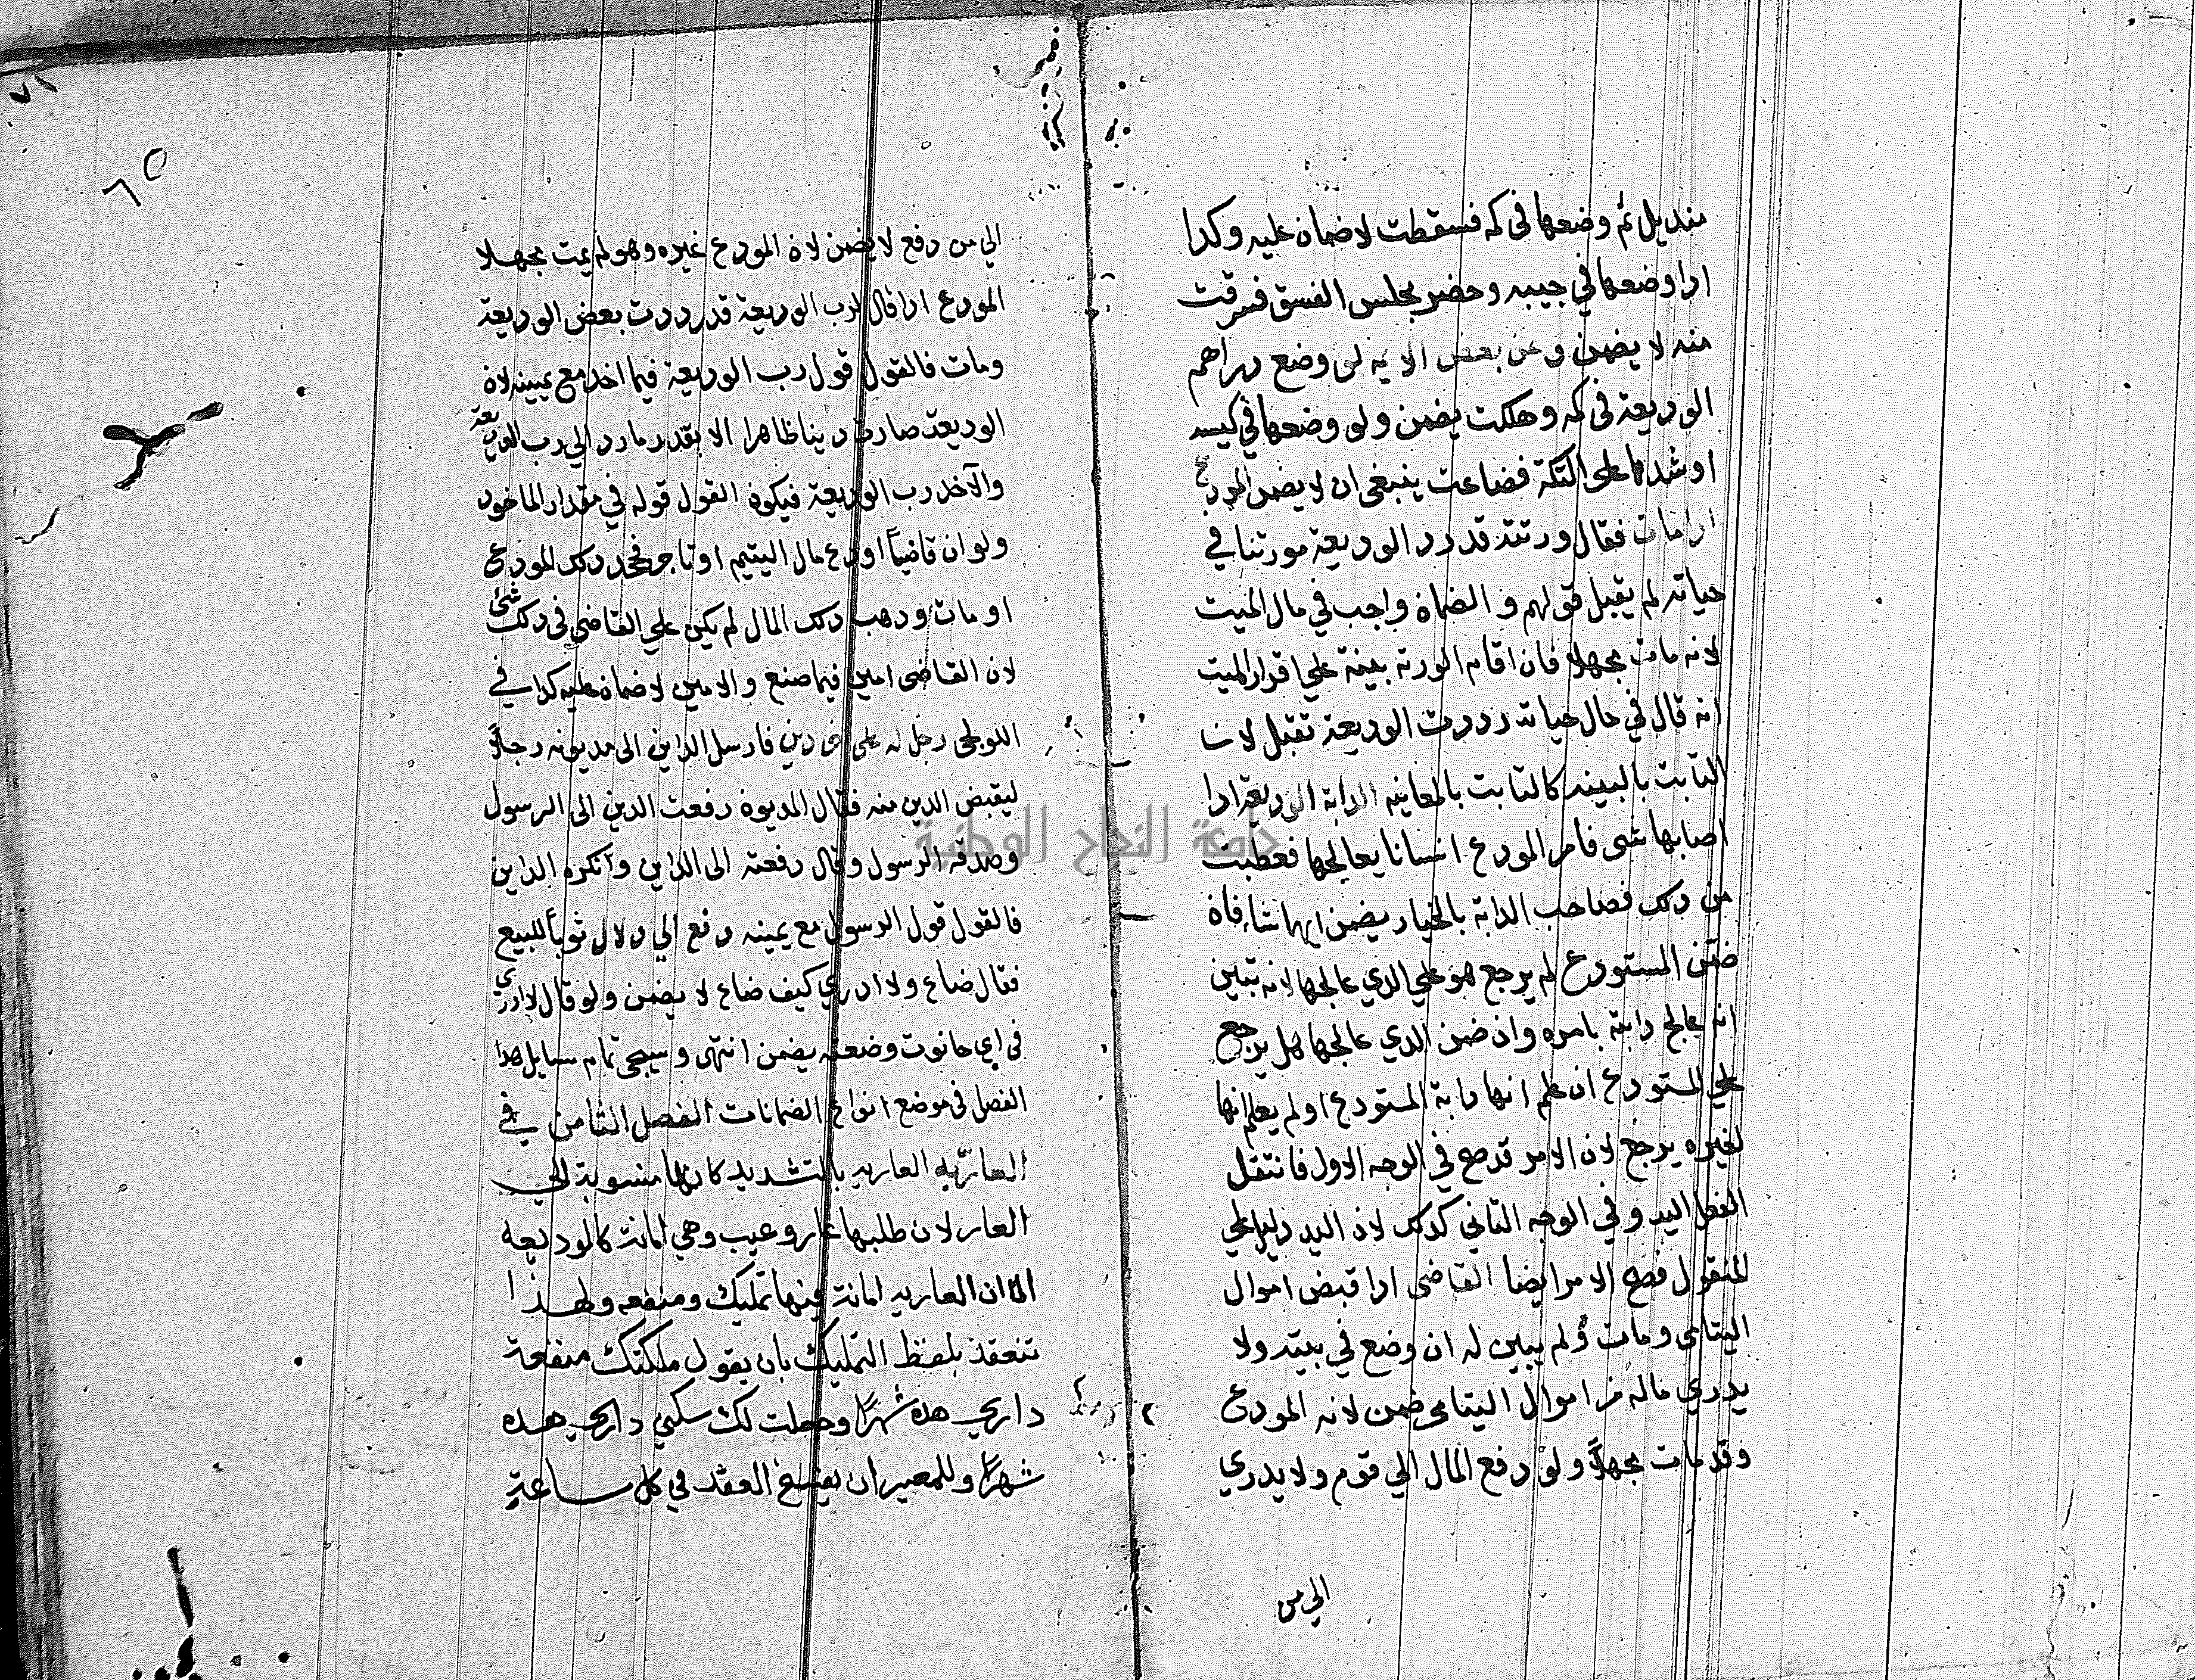 منديل ثم وضعها في كمه فسقطت لا ضمان عليه وكدا
ادا وضعها في جيبه وحضر مجلس الفسق فسرقت
منه لا يضمن وعن بعض الايمه لو وضع دراهم
الوديعة في كمه وهلكت يضمن ولو وضعها في كيسه
او شدها على التكة فضاعت ينبغي ان لا يضمن المودع
ادا مات فقال ورثته قد رد الوديعة مورثنا في
حياته لم يقبل قولهم والضمان واجب في مال الميت
لانه مات مجهلا فان اقام الورثة بينة علي اقرار الميت
انه قال في حال حياته رددت الوديعة تقبل لان
الثابت بالبينه كالثابت بالمعاينه الدابة الوديعة ادا
اصابها شى فامر المودع انسانا يعالجها فعطبت
من دلك فصاحب الدابة بالخيار يضمن ايهما شاء فان
ضمن المستودع لم يرجع هو علي الدي عالجها لانه تبين
انه عالج دابته بامره وان ضمن الدي عالجها هل يرجع
علي المستودع ان علم انها دابة المستودع او لم يعلم انها
لغيره يرجع لان الامر قد صح في الوجه الاول فانتقل
الفعل اليد وفي الوجه الثاني كدلك لان اليد دليل علي
المنقول فصح الامر ايضا القاضى ادا قبض اموال
اليتامى ومات ولم يبين له ان وضع في بيته ولا
يدري ماله من اموال اليتامى ضمن لانه المودع
وقد مات مجهلاً ولو دفع المال الي قوم ولا يدري
الي من
٦٥
الي من دفع لا يضمن لان المودع غيره وهو لم يمت مجهلا
المودع ادا قال لرب الوديعة قد رددت بعض الوديعة
ومات فالقول قول رب الوديعة فيما اخد مع يمينه لان
الوديعة صارت دينا ظاهرا الا بقدر ما رد الي رب الوديعة
والآخد رب الوديعة فيكون القول قوله في مقدار الماخود
ولو ان قاضياً اودع مال اليتيم او تاجر فجحد دلك المودع
او مات ودهب دلك المال لم يكن علي القاضي في دلك شئ
لان القاضى امين فيما صنع والامين لا ضمان عليه كدا في
اللولجى رجل له على دين فارسل الداين الى مديونه رجلاً
ليقبض الدين منه فقال المديون دفعت الدين الى الرسول
وصدقه الرسول وقال دفعته الى الداين وانكره الداين
فالقول قول الرسول مع يمينه دفع الي دلال ثوباً للبيع
فقال ضاع ولا ادري كيف ضاع لا يضمن ولو قال لا ادري
في اي حانوت وضعته يضمن انتهى وسيجى تمام مسايل هدا
الفصل في موضع انواع الضمانات الفصل الثامن في
العاريّه العاريه بالتشديد كانها منسوبة الي
العار لان طلبها عار وعيب وهي امانة كالوديعه
الا ان العاريه امانة فيها تمليك ومنفعه ولهذا
تنعقد بلفظ التمليك بان يقول ملكتك منفعة
داري هده شهرًا وجعلت لك سكني داري هده
شهرًا وللمعير ان يفسخ العقد في كل ساعةٍ
جامعة النجاح الوطنية